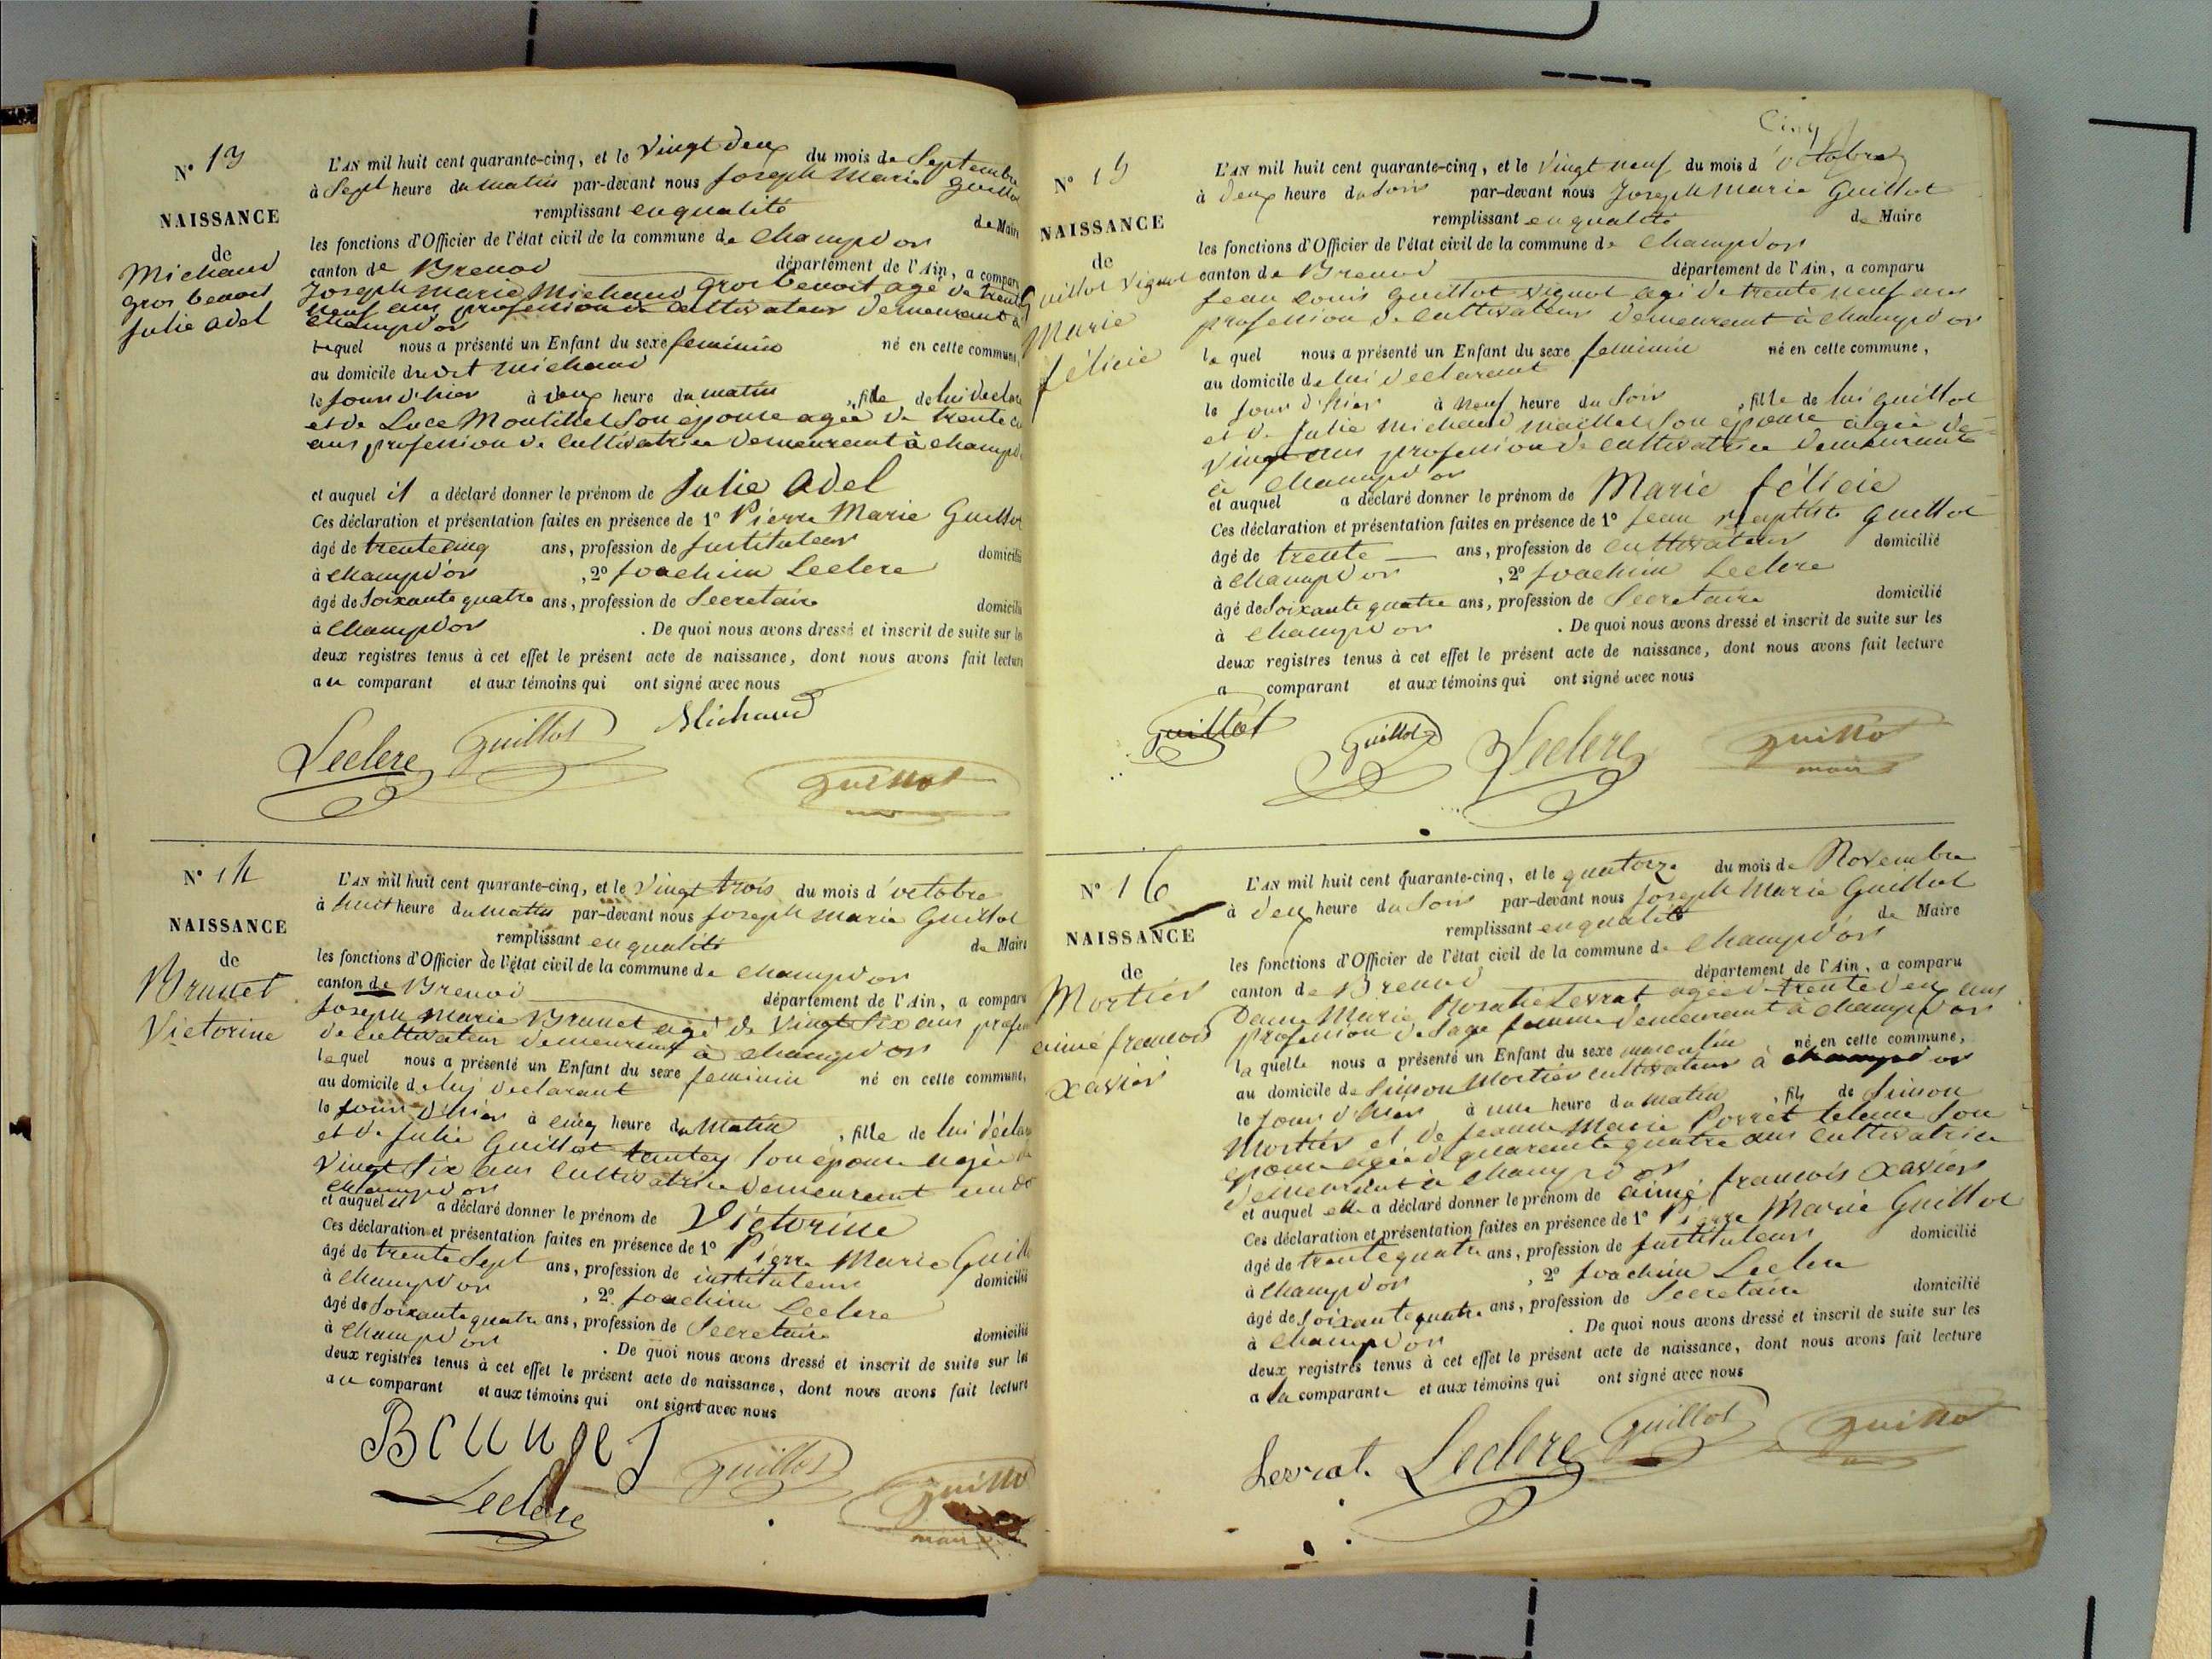 N° 13
NAISSANCE
de
Michaud
gros benoit
Julie adel
L'AN mil huit cent quarante-cinq, et le Vingt deux du mois de Septembre
à Sept heure du matin par-devant nous Joseph Marie Guillot
remplissant en qualité de Maire
les fonctions d'Officier de l'état civil de la commune de Champdor
canton de Brenod département de l'Ain, a comparu
Joseph Marie Michaud gros benoit agé de trente
neuf ans profession de cultivateur demeurant à
Champdor
lequel nous a présenté un Enfant du sexe feminin né en cette commune,
au domicile dudit Michaud
le jour d'hier à deux heure du matin, fille de lui déclarant
et de Luce Montillet son épouse agée de trente
ans profession de cultivatrice demeurant à Champdor
et auquel il a déclaré donner le prénom de Julie Adel
Ces déclaration et présentation faites en présence de 1° Pierre Marie Guillot
âgé de trente cinq ans, profession de Instituteur domicilié
à Champdor, 2° Joachim Leclerc
âgé de Soixante quatre ans, profession de Secretaire domicilié
à Champdor. De quoi nous avons dressé et inscrit de suite sur les
deux registres tenus à cet effet le présent acte de naissance, dont nous avons fait lecture
au comparant et aux témoins qui ont signé avec nous
Leclerc Guillot Michaud
Guillot
N° 14
NAISSANCE
de
Brunet
Victorine
L'AN mil huit cent quarante-cinq, et le Vingt trois du mois d'octobre
à huit heure du matin par-devant nous Joseph Marie Guillot
remplissant en qualité de Maire
les fonctions d'Officier de l'état civil de la commune de Champdor
canton de Brenod département de l'Ain, a comparu
Joseph Marie Brunet agé de Vingt Six ans profession
de cultivateur demeurant à Champdor
lequel nous a présenté un Enfant du sexe feminin né en cette commune,
au domicile de lui declarant
le jour d'hier à cinq heure du Matin, fille de lui déclarant
et de Julie Guillot tantey son épouse agée de
Vingt Six ans cultivatrice demeurant
Champdor
et auquel il a déclaré donner le prénom de Victorine
Ces déclaration et présentation faites en présence de 1° Pierre Marie Guillot
âgé de trente Sept ans, profession de instituteur domicilié
à Champdor, 2° Joachim Leclerc
âgé de Soixante quatre ans, profession de Secretaire domicilié
à Champdor. De quoi nous avons dressé et inscrit de suite sur les
deux registres tenus à cet effet le présent acte de naissance, dont nous avons fait lecture
au comparant et aux témoins qui ont signé avec nous
Guillot
Leclerc Guillot
maire
Cinq
N° 15
NAISSANCE
de
Guillot Vignot
Marie
félicie
L'AN mil huit cent quarante-cinq, et le Vingt neuf du mois d'octobre
à deux heure du soir par-devant nous Joseph Marie Guillot
remplissant en qualité de Maire
les fonctions d'Officier de l'état civil de la commune de Champdor
canton de Brenod département de l'Ain, a comparu
Jean Louis Guillot Vignot agé de trente neuf ans
profession de cultivateur demeurant à Champdor
lequel nous a présenté un Enfant du sexe feminin né en cette commune,
au domicile de lui declarant
le jour d'hier à Neuf heure du Soir, fille de lui Guillot
et de Julie Michaud Maillet son épouse agée de
Vingt ans profession de cultivatrice demeurant
à Champdor
et auquel a déclaré donner le prénom de Marie félicie
Ces déclaration et présentation faites en présence de 1° Jean Baptiste Guillot
âgé de trente ans, profession de cultivateur domicilié
à Champdor, 2° Joachim Leclerc
âgé de Soixante quatre ans, profession de Secretaire domicilié
à Champdor. De quoi nous avons dressé et inscrit de suite sur les
deux registres tenus à cet effet le présent acte de naissance, dont nous avons fait lecture
a comparant et aux témoins qui ont signé avec nous
Guillot Guillot Leclerc Guillot
maire
N° 16
NAISSANCE
de
Mortier
aimé françois
Xavier
L'AN mil huit cent quarante-cinq, et le quatorze du mois de Novembre
à deux heure du Soir par-devant nous Joseph Marie Guillot
remplissant en qualité de Maire
les fonctions d'Officier de l'état civil de la commune de Champdor
canton de Brenod département de l'Ain, a comparu
Dame Marie Rosalie Levrat agée de trente deux ans
profession de Sage femme demeurant à Champdor
laquelle nous a présenté un Enfant du sexe masculin né en cette commune,
au domicile de Simon Mortier cultivateur à Champdor
le jour d'hier à une heure du matin, fils de Simon
Mortier et de Jeanne Marie Porret son
épouse agée de quarante quatre ans cultivatrice
demeurant à Champdor
et auquel elle a déclaré donner le prénom de aimé françois Xavier
Ces déclaration et présentation faites en présence de 1° Pierre Marie Guillot
âgé de trente quatre ans, profession de Instituteur domicilié
à Champdor, 2° Joachim Leclerc
âgé de Soixante quatre ans, profession de Secretaire domicilié
à Champdor. De quoi nous avons dressé et inscrit de suite sur les
deux registres tenus à cet effet le présent acte de naissance, dont nous avons fait lecture
a la comparante et aux témoins qui ont signé avec nous
Levrat Leclerc Guillot Guillot